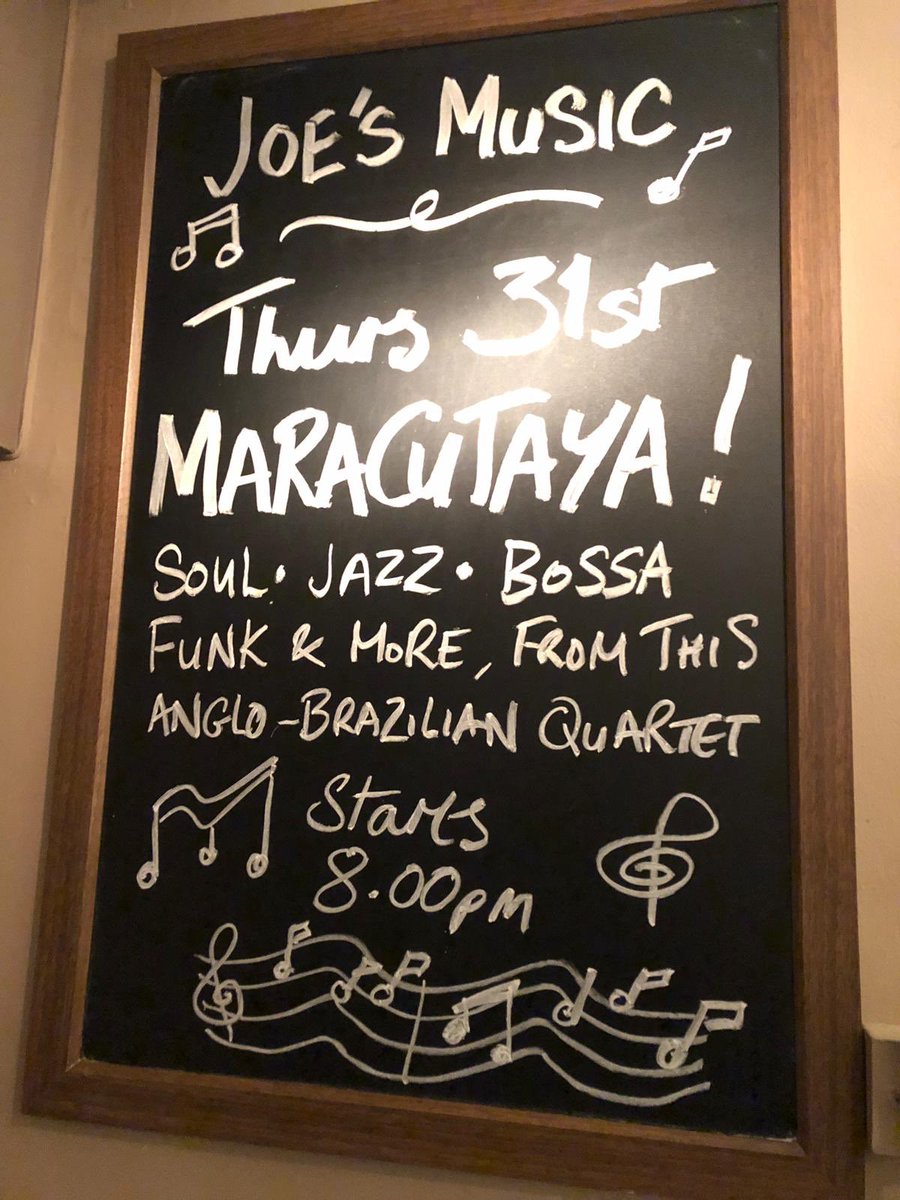 JOE'S MUSIC
Thurs 31st
MARACUTAYA!
SOUL· JAZZ· BOSSA
FUNK & MORE, FROM THIS
ANGLO-BRAZILIAN QUARTET
Starts
8.00pm